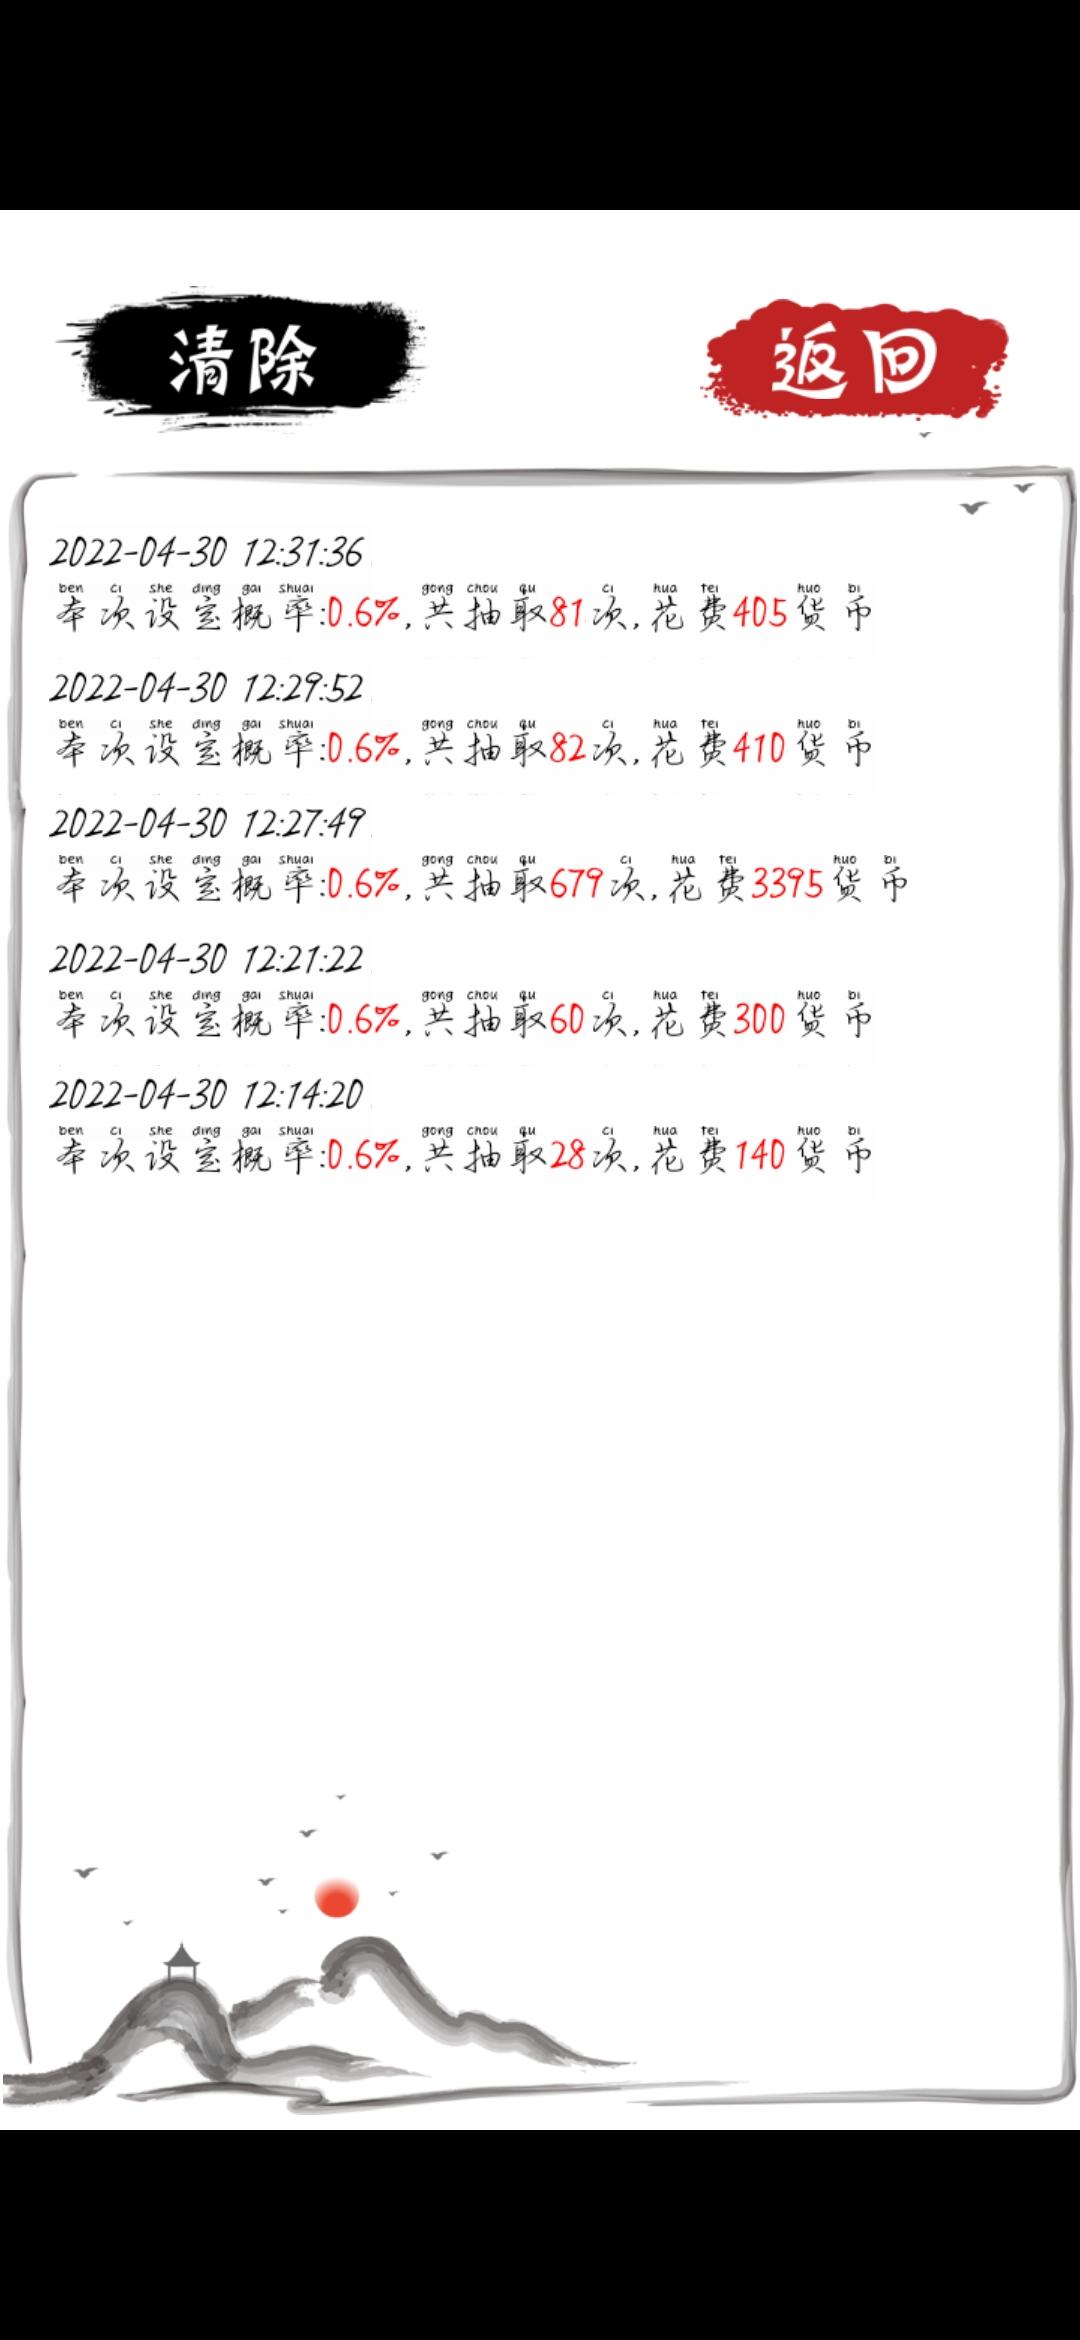 清除
返回
2022-04-30 12:31:36
ben ci she ding gai shuai gong chou qu ci hua fei huo bi
本次设定概率:0.6%,共抽取81次,花费405货币
2022-04-30 12:29:52
ben ci she ding gai shuai gong chou qu ci hua fei huo bi
本次设定概率:0.6%,共抽取82次,花费410货币
2022-04-30 12:27:49
ben ci she ding gai shuai gong chou qu ci hua fei huo bi
本次设定概率:0.6%,共抽取679次,花费3395货币
2022-04-30 12:21:22
ben ci she ding gai shuai gong chou qu ci hua fei huo bi
本次设定概率:0.6%,共抽取60次,花费300货币
2022-04-30 12:14:20
ben ci she ding gai shuai gong chou qu ci hua fei huo bi
本次设定概率:0.6%,共抽取28次,花费140货币